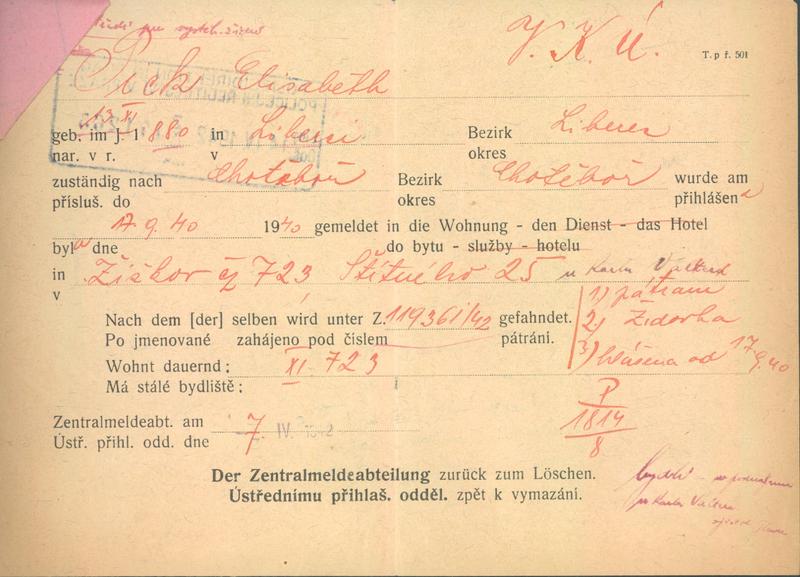 V. K. Ú.
T. p ř. 501
Pick Elisabeth
geb. im J. 1880 in Liberci Bezirk Liberec
13 XI
nar. v r. v okres
zuständig nach Chotěboř Bezirk Chotěboř wurde am
přísluš. do okres přihlášena
17. 9. 40 1940 gemeldet in die Wohnung - den Dienst - das Hotel
byla dne do bytu - služby - hotelu
in Žižkov čp 723 Štítného 25 u Karla
v
Nach dem [der] selben wird unter Z. 119361/42 gefahndet.
Po jmenované zahájeno pod číslem pátrání.
1) pátrám
2) Židovka
3) hlášena od 17 9. 40
Wohnt dauernd: XI. 723
Má stálé bydliště:
P
1814
8
Zentralmeldeabt. am 7. IV. 1942
Ústř. přihl. odd. dne
Der Zentralmeldeabteilung zurück zum Löschen.
Ústřednímu přihlaš. odděl. zpět k vymazání.
bydlí